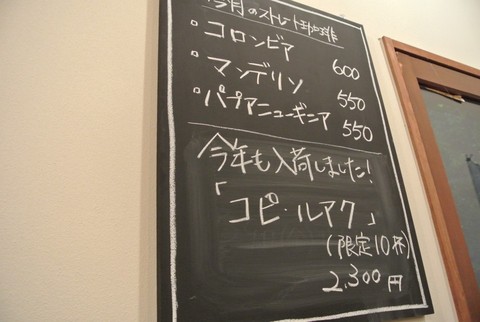 今月のストレート珈琲
° コロンビア 600
° マンデリン 550
° パプアニューギニア 550
今年も入荷しました!
「コピ・ルアク」
(限定10杯)
2,300円